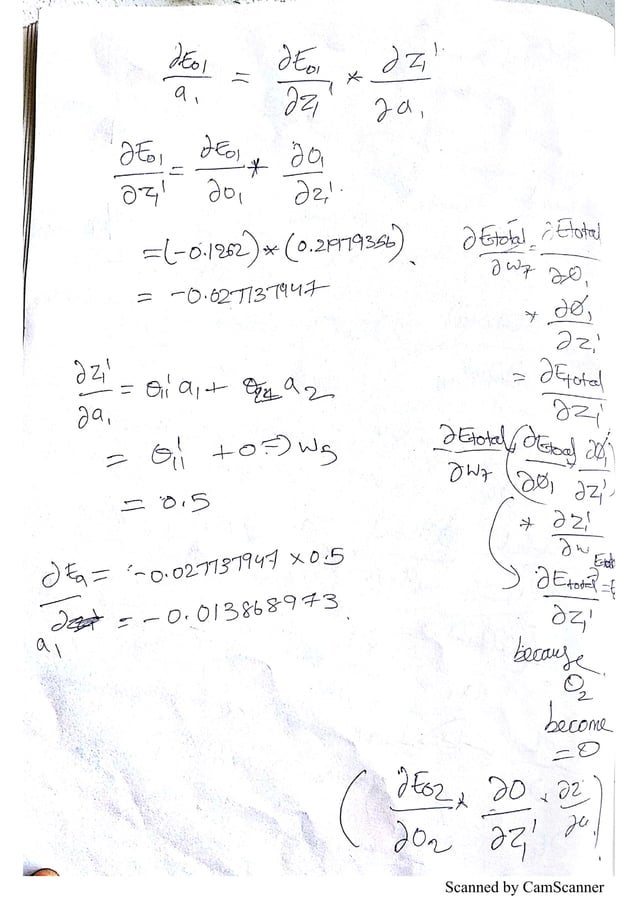 ∂E₀₁/a₁ = ∂E₀₁/∂z₁' * ∂z₁'/∂a₁
∂E₀₁/∂z₁' = ∂E₀₁/∂o₁ * ∂o₁/∂z₁'
= (-0.1262) * (0.21979356)
= -0.027737947
∂z₁'/∂a₁ = θ₁₁' a₁ + θ₂₁ a₂
= θ₁₁' + 0 => w₅
= 0.5
∂Eₐ/∂ a₁ = -0.027737947 x 0.5
= -0.013868973
∂Etotal/∂w₇ = ∂Etotal/∂O₁
* ∂O₁/∂z₁'
= ∂Etotal/∂z₁'
∂Etotal/∂w₇ (∂Etotal/∂O₁ ∂O₁/∂z₁'
* ∂z₁'/∂w
∂Etotal/∂z₁' =
because
O₂
become
= 0
(∂E₀₂/∂o₂ * ∂O/∂z₁' * ∂z/∂a)
Scanned by CamScanner